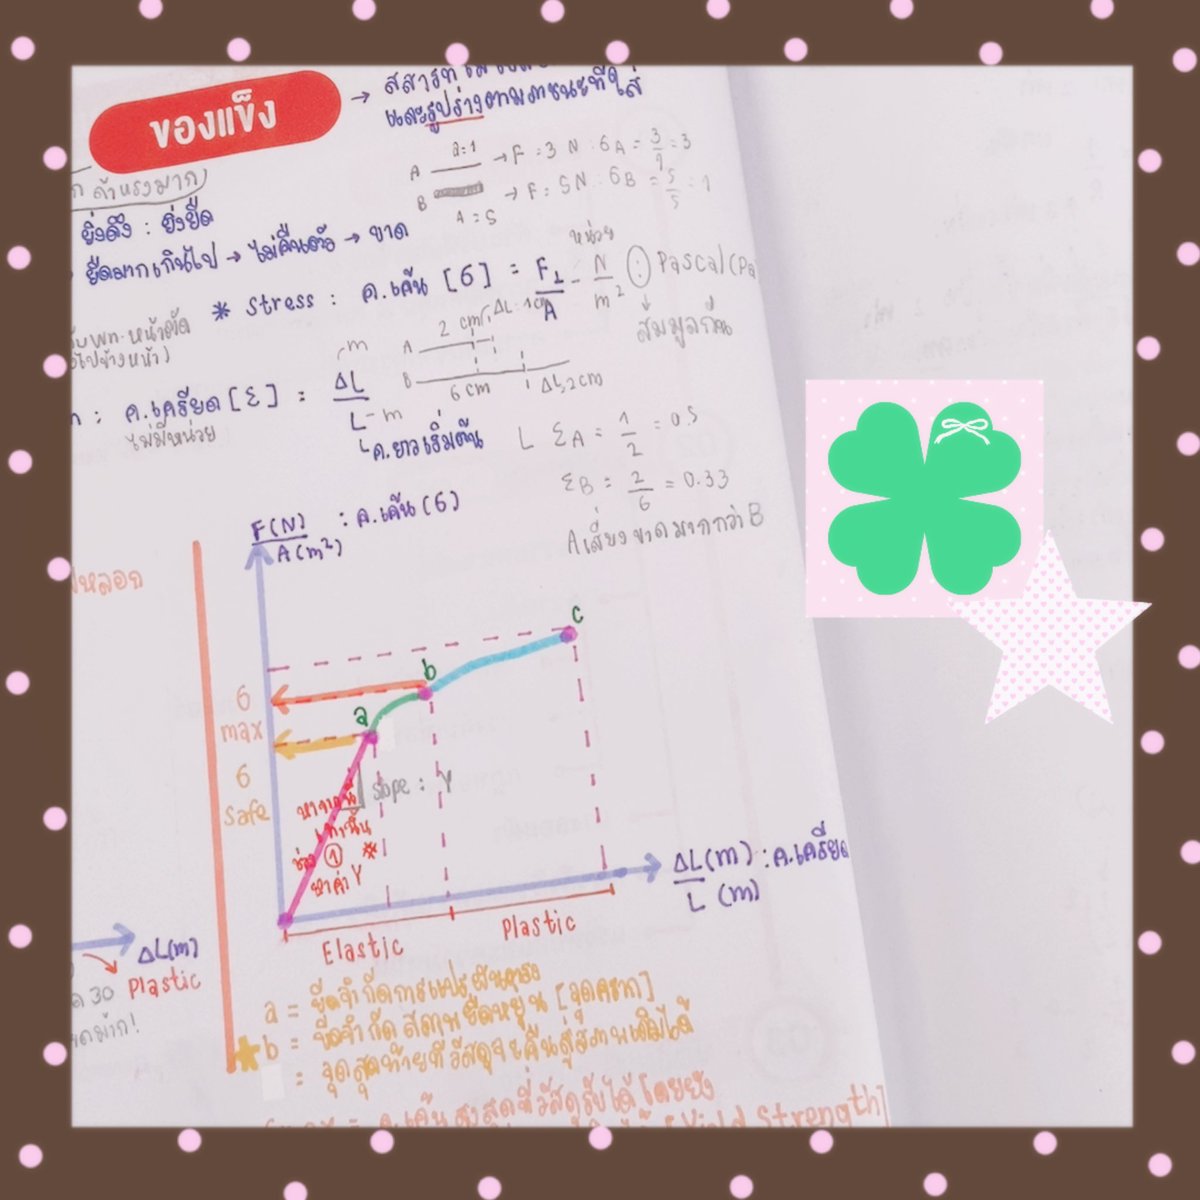 ของแข็ง
และรูปร่างตามภาชนะที่ใส่
ถ้าแรงมาก)
a=1
A → F = 3 N : σA = 3/1 = 3
B → F = 5N : σB = 5/5 = 1
A = 5
ยิ่งดึง : ยิ่งยืด
ยืดมากเกินไป → ไม่คืนตัว → ขาด
หน่วย
* Stress : ค.เค้น [σ] = F⊥/A - N/m² : Pascal (Pa
สมมูลกัน
พท.หน้าตัด
ไปข้างหน้า)
A 2 cm ΔL=1cm
B 6 cm ΔL 2 cm
: ค.เครียด [ε] = ΔL/L - m
ไม่มีหน่วย
ค.ยาวเริ่มต้น
εA = 1/2 = 0.5
εB = 2/6 = 0.33
A เสี่ยงขาดมากกว่า B
F(N)/A(m²) : ค.เค้น (σ)
หลอก
c
b
a
σ max
σ safe
slope = Y
ช่วง ① *
หาค่า Y
ΔL(m)/L (m) : ค.เครียด
Elastic
Plastic
ΔL(m)
Plastic
30
มาก!
a = ขีดจำกัดการแปรผันตรง
b = ขีดจำกัดสภาพยืดหยุ่น [จุดคราก]
= จุดสุดท้ายที่วัสดุจะคืนสู่สภาพเดิมได้
= ค.เค้นสูงสุดที่วัสดุรับได้ โดยยัง
Yield Strength]